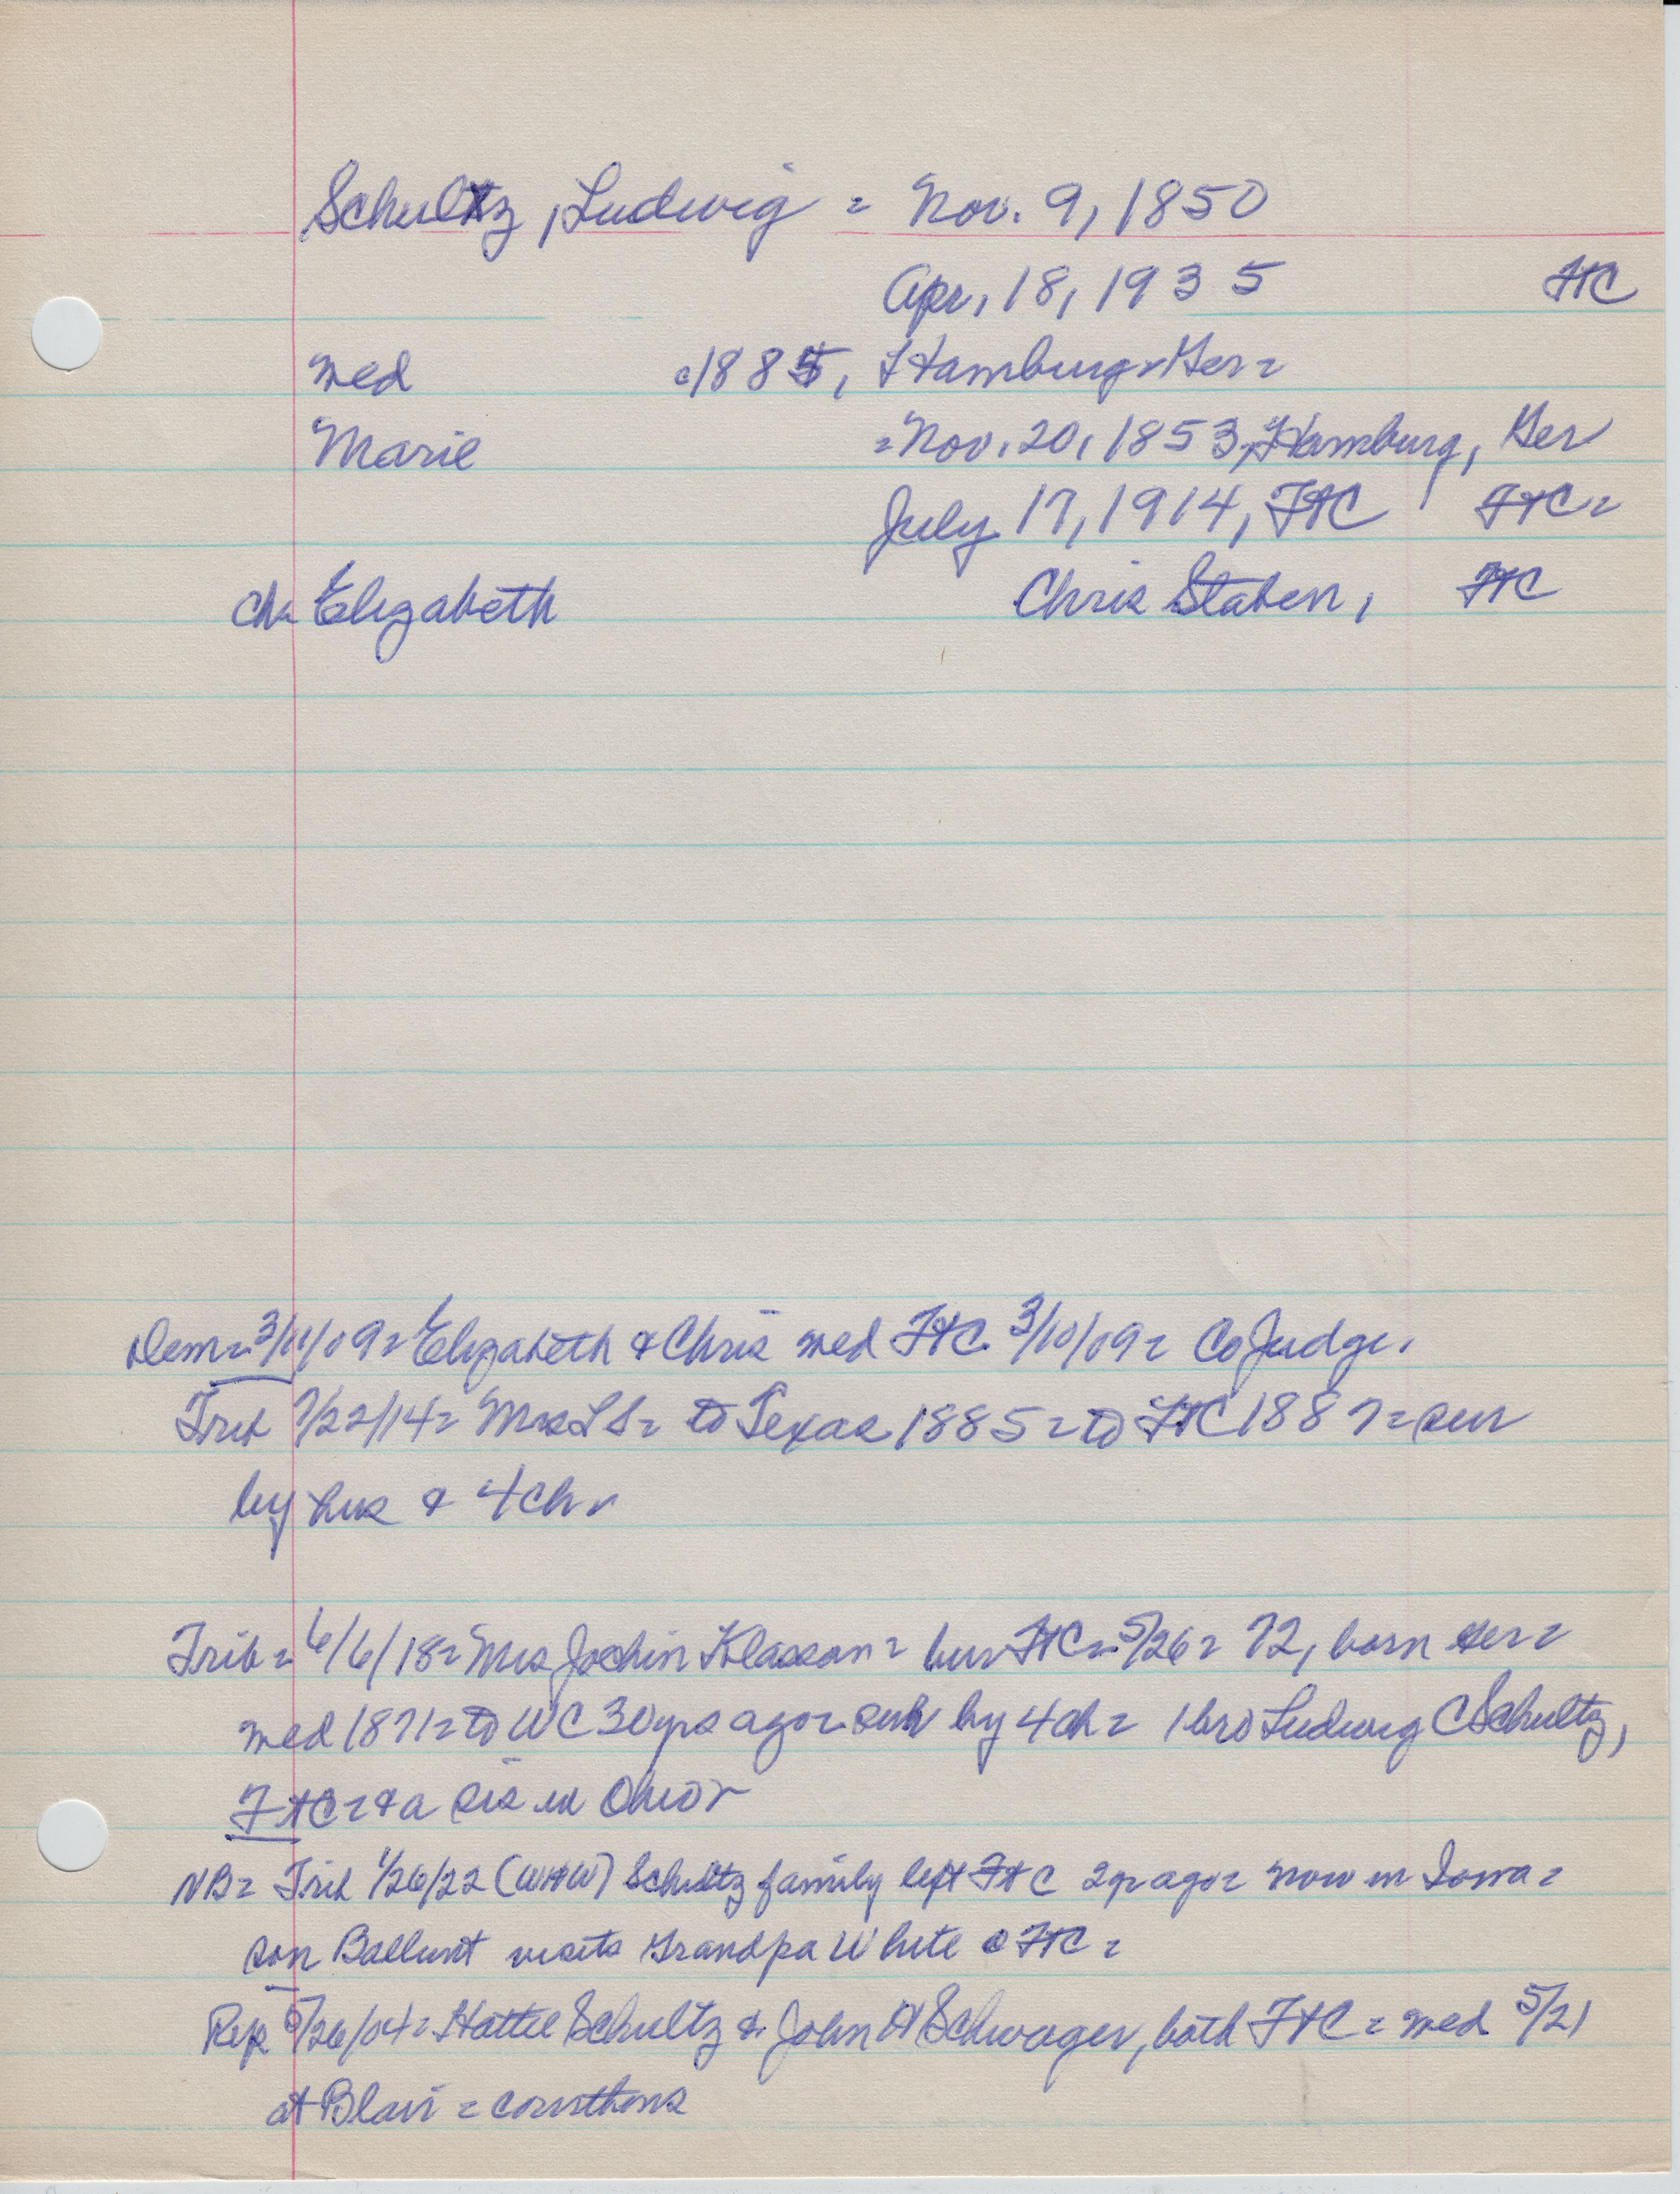 Schultz, Ludwig = Nov. 9, 1850
Apr, 18, 1935 FtC
med c1885, Hamburg Ger =
Marie = Nov. 20, 1853, Hamburg, Ger
July 17, 1914, FtC FtC =
ch = Elizabeth Chris Staben, FtC
Dem = 3/11/09 = Elizabeth & Chris med FtC 3/10/09 = Co Judge.
Trib 7/22/14 = Mrs L S = to Texas 1885 = to FtC 1887 = sur
by hus & 4 ch =
Trib = 6/6/18 = Mrs Jochin Klasson = bur FtC = 5/26 = 72, born Ger =
med 1871 = to WC 30 yrs ago = sur by 4 ch = 1 bro Ludwig C Schultz,
FtC = & a sis in Ohio =
NB = Trib 1/26/22 (W&W) Schultz family left FtC 2 yr ago = now in Iowa =
son visits Grandpa White @ FtC =
Rep 5/26/04 = Hattie Schultz & John H Schwager, both FtC = med 5/21
at Blair =